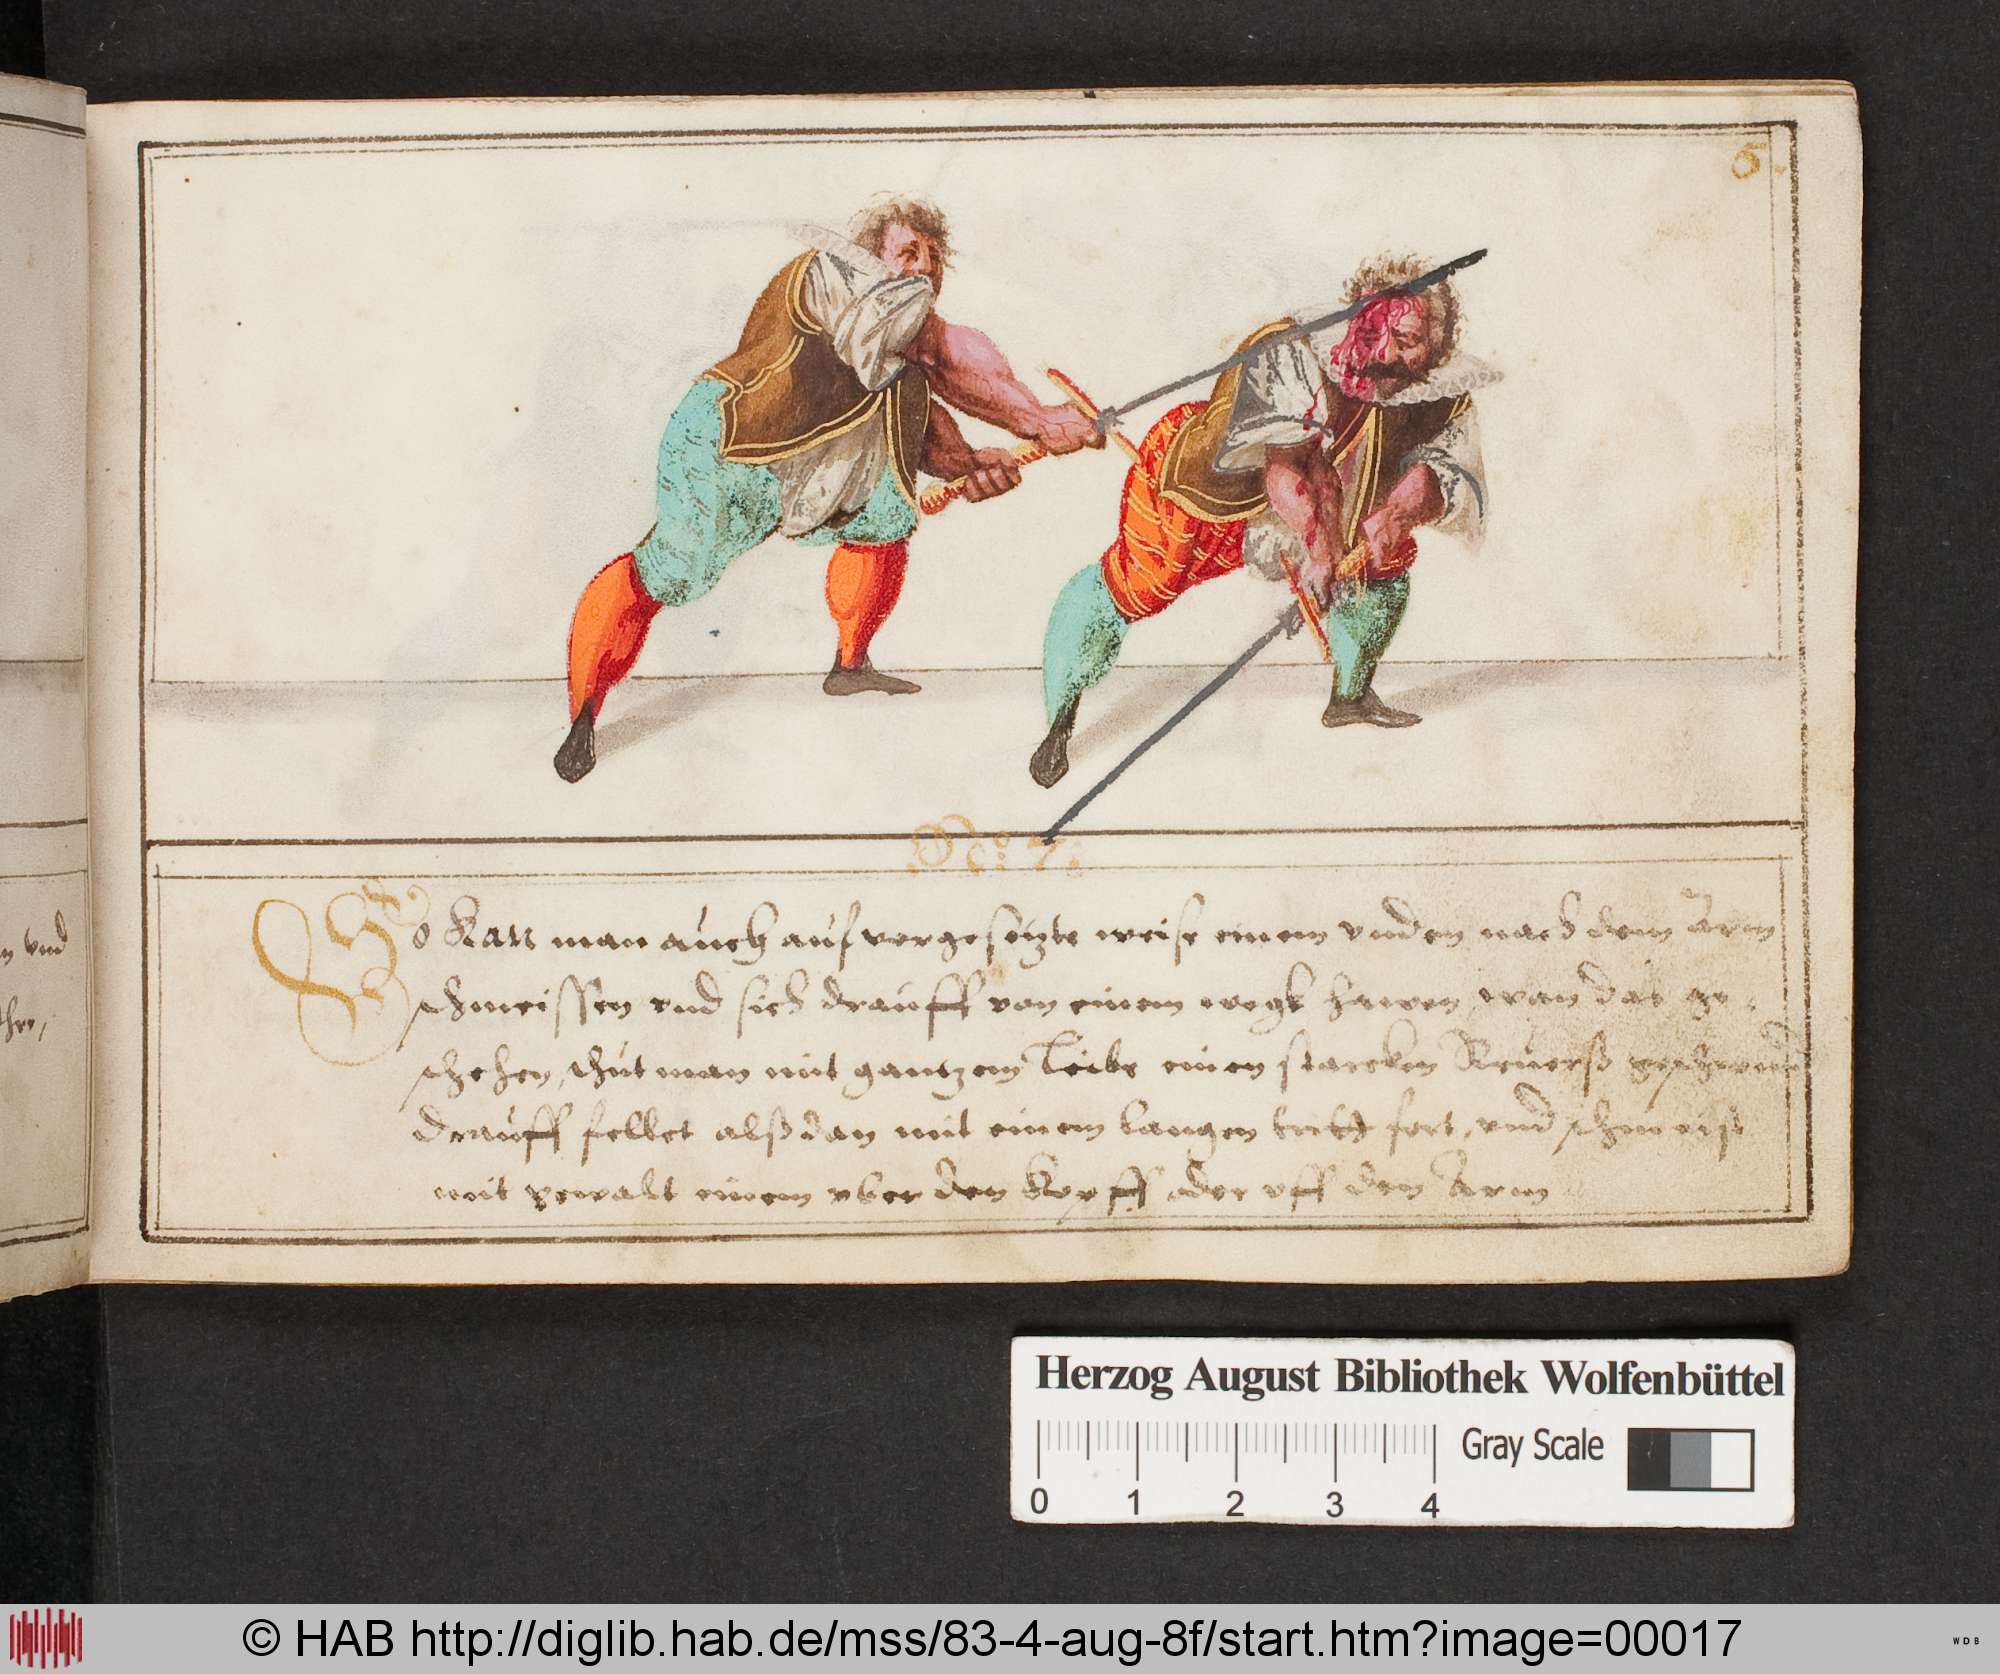 5.
n vnd
No: 7:
So Kan man auch auf vorgesetzte weise einem vnden nach dem Arm
schmeissen vnd sich drauff von einem wegk hawen, wan das ge-
schehen, thut man mit gantzem Leibe einen starcken Reuerß
drauff felket alß dan mit einem langen tritt fort, vnd schmeist
mit gewalt einem vber den Kopff oder vff den Arm
Herzog August Bibliothek Wolfenbüttel
Gray Scale
0 1 2 3 4
© HAB http://diglib.hab.de/mss/83-4-aug-8f/start.htm?image=00017
WDB